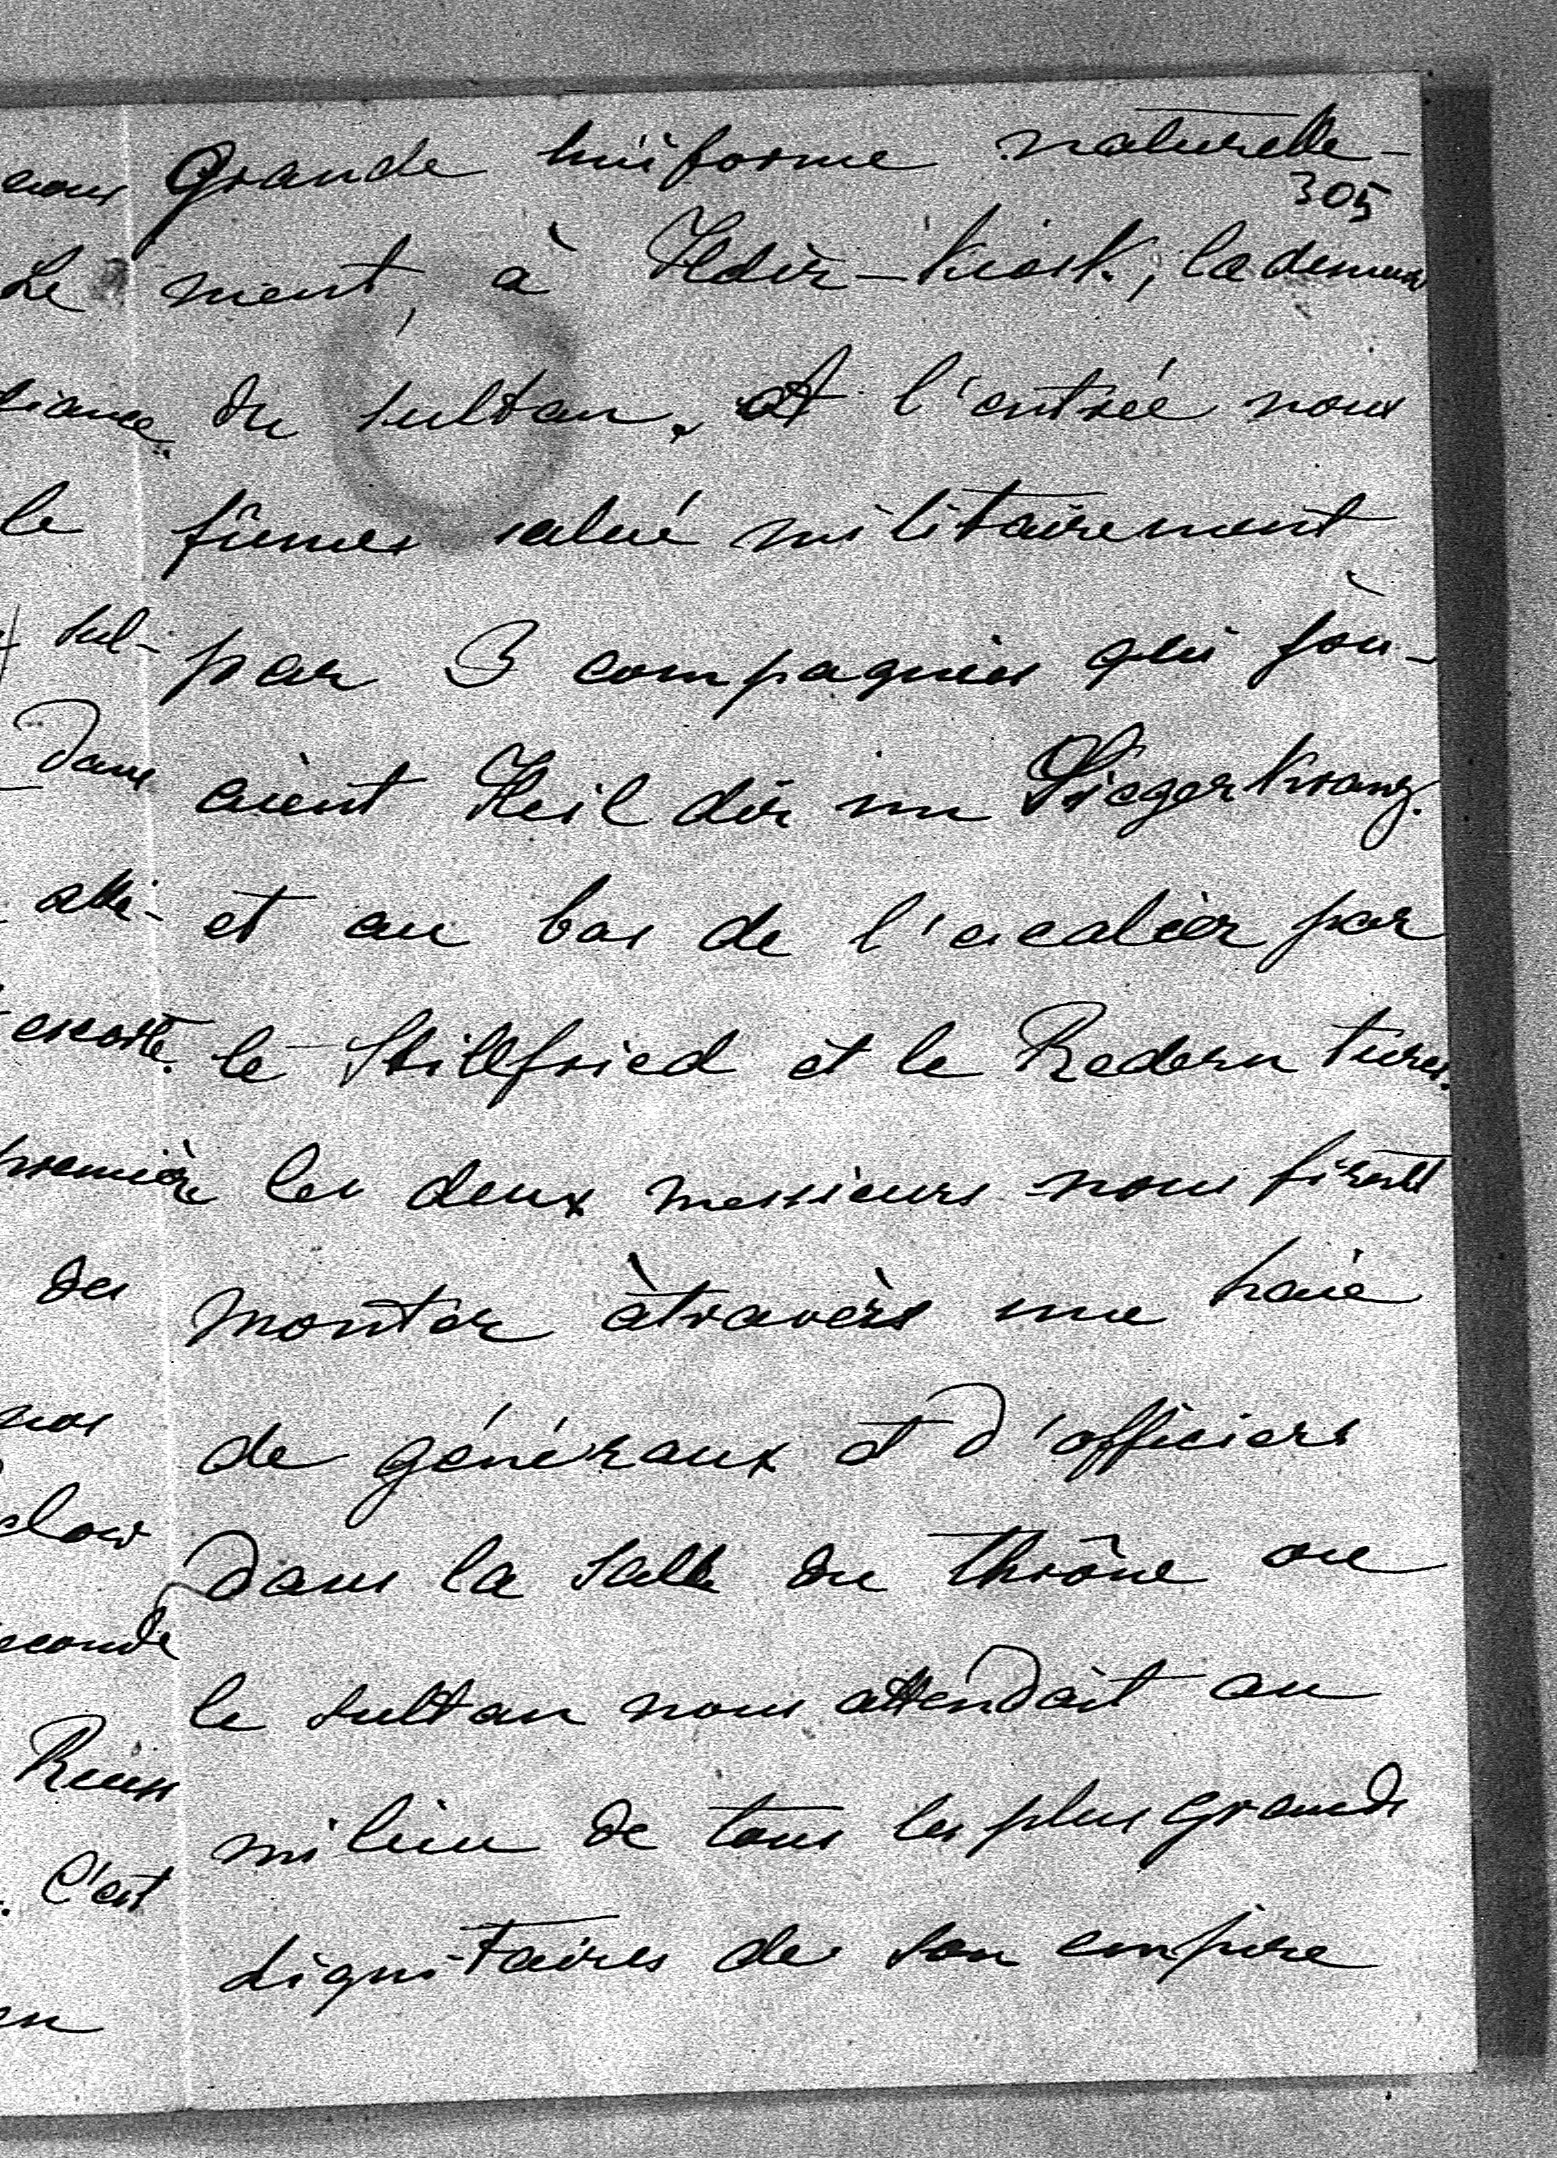 grande uniforme naturelle-
305
ment, à Ildir-Kiosk, la demeure
du sultan. A l'entrée nous
fûmes salué militairement
par 3 compagnies qui jou-
aient Heil dir im Siegerkranz.
et au bas de l'escalier par
le Stillfried et le Redern turcs.
les deux messieurs nous firent
monter àtravers une haie
de généraux et d'officiers
dans la salle du thrône ou
le sultan nous attendait au
milieu de tous les plus grands
dignitaires de son empire
nous
Le
le
sul-
Dans
escorte.
première
des
nos
Reuss
. C'est
en